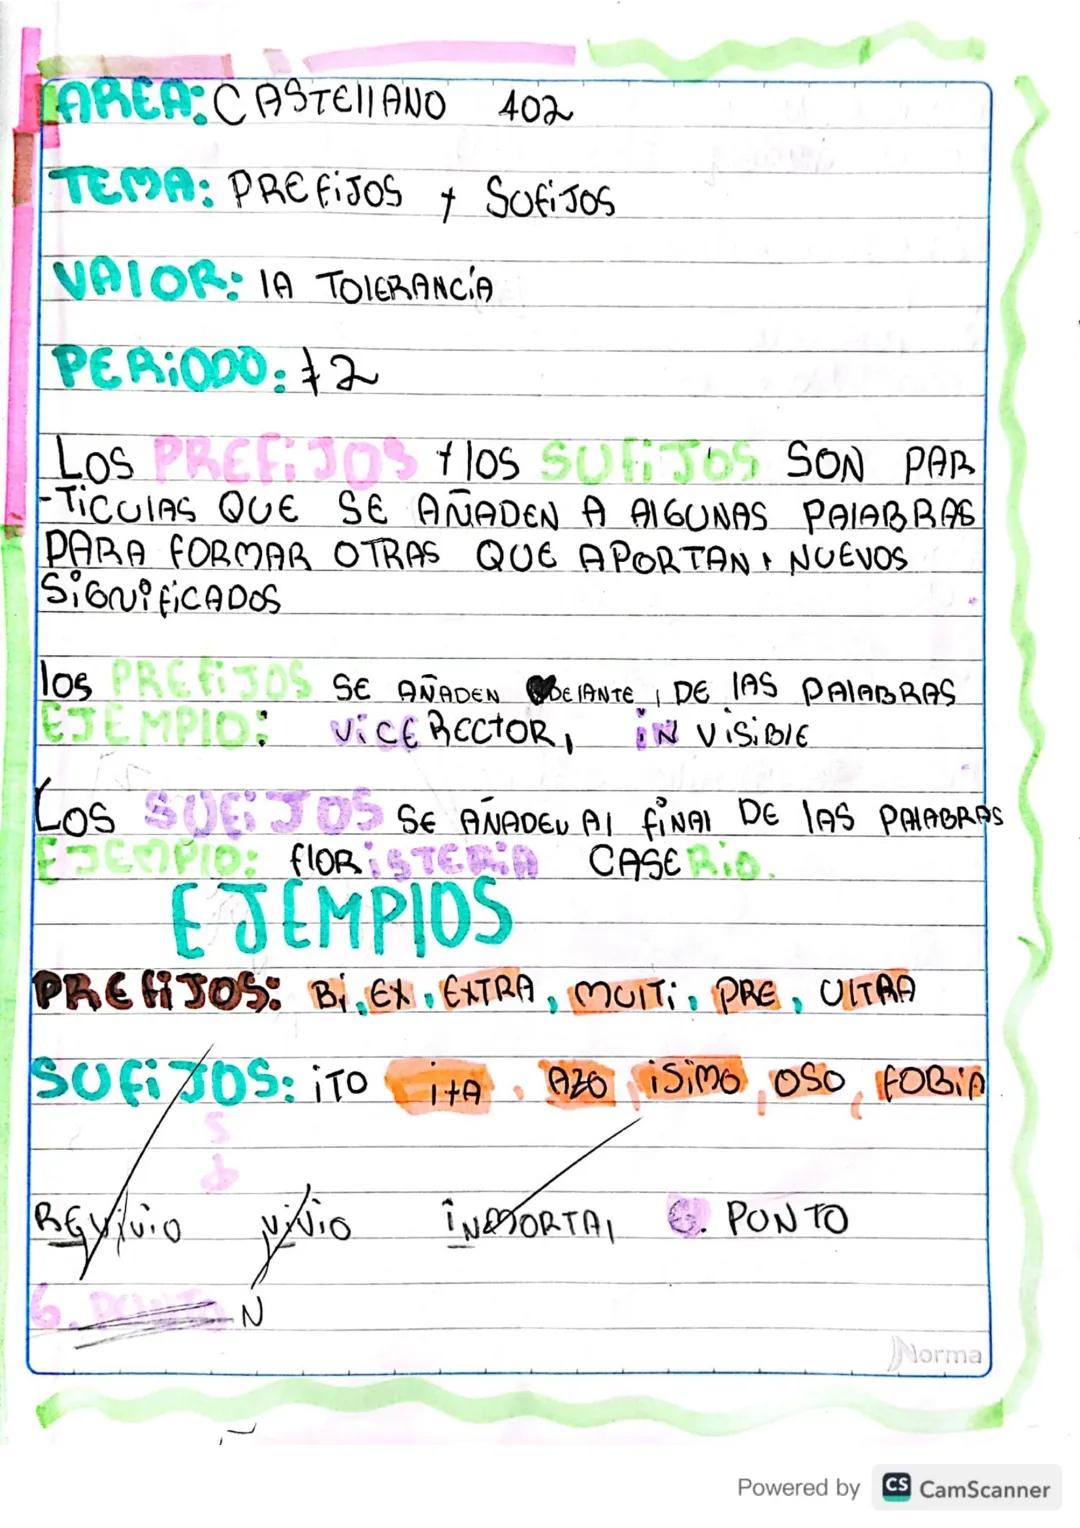 AREA: CASTEllANO 402
TEMA: PREFiJOS Y SUFiJOS
VAlOR: lA TOlERANCíA
PERiODO: #2
LOS PREFiJOS Y lOS SUFiJOS SON PAR
-TiCUlAS QUE SE AÑADEN A AlGUNAS PAlABRAS
PARA FORMAR OTRAS QUE APORTAN NUEVOS
SiGNiFiCADOS
lOS PREFiJOS SE AÑADEN DElANTE DE lAS PAlABRAS
EJEMPlO: ViCERECTOR, iN ViSiBlE
LOS SUFiJOS SE AÑADEN Al FiNAl DE lAS PAlABRAS
EJEMPlO: FlORiSTERiA CASERiO.
EJEMPlOS
PREFiJOS: Bi, EX, EXTRA, MUlTi, PRE, UlTRA
SUFiJOS: iTO iTA, AZO iSiMO, OSO, FOBiA
REViViO ViViO iNMORTAl 6. PUNTO
6. PUNTO N
Norma
Powered by CS CamScanner